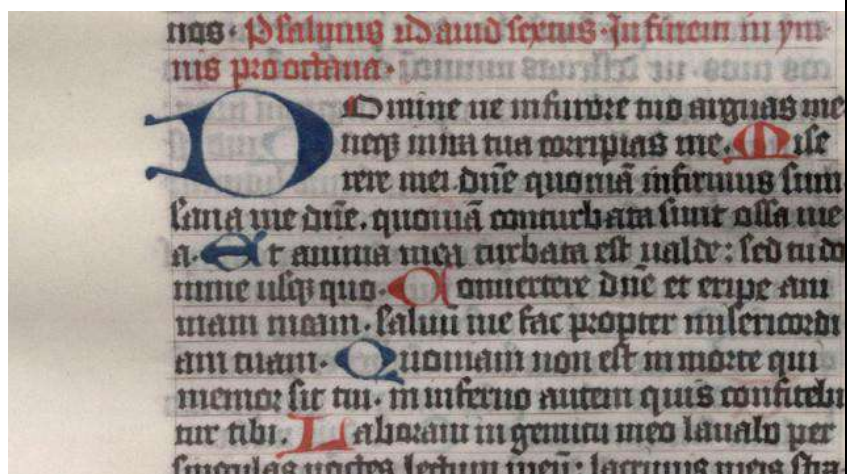 nos. Psalmus id dauid sextus. In finem in ym
nis pro octaua.
DOmine ne in furore tuo arguas me
neqꝫ in ira tua corripias me. Mise
rere mei dn̄e quoniā infirmus sum
sana me dn̄e. quoniā conturbata sunt ossa me
a. Et anima mea turbata est ualde: sed tu do
mine usqꝫ quo. Conuertere dn̄e et eripe ani
mam meam. saluū me fac propter misericordi
am tuam. Quoniam non est in morte qui
memor sit tui. in inferno autem quis confitebi
tur tibi. Laboraui in gemitu meo lauabo per
singulas noctes lectum meū: lacrimis meis stra